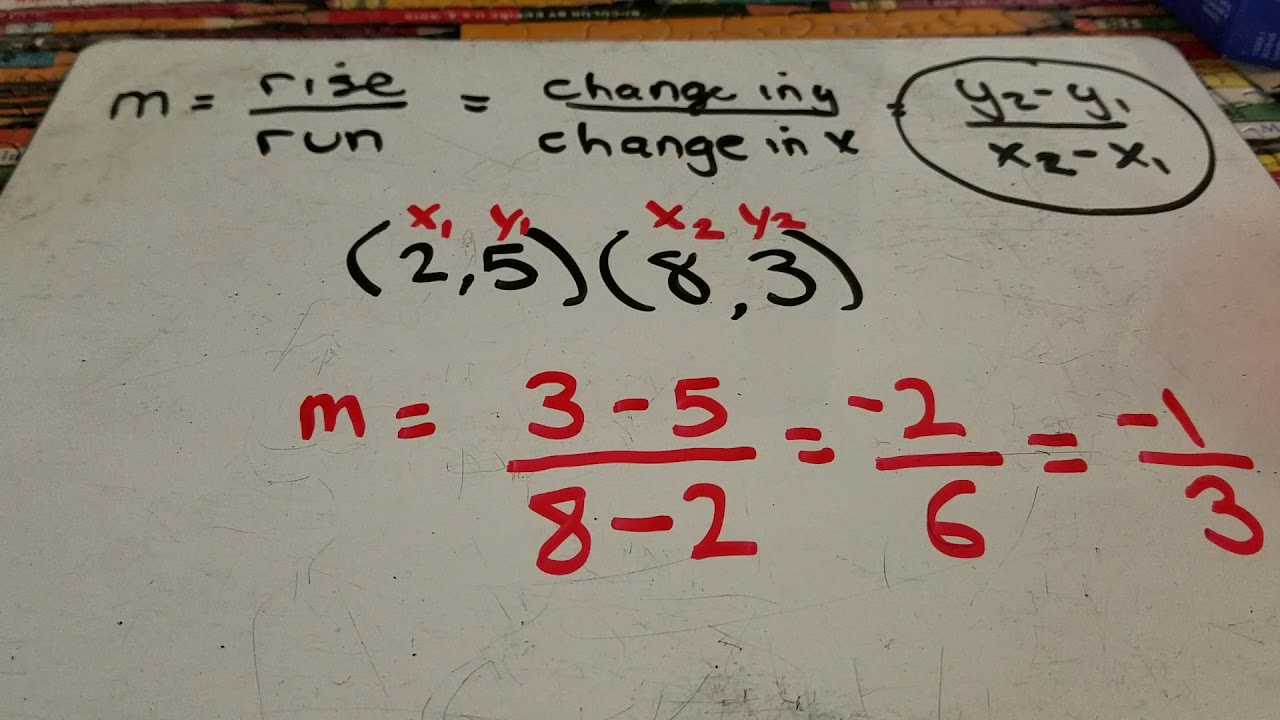 m = rise/run = change in y/change in x = y₂-y₁/x₂-x₁
x₁ y₁ x₂ y₂
(2,5)(8,3)
m = 3-5/8-2 = -2/6 = -1/3